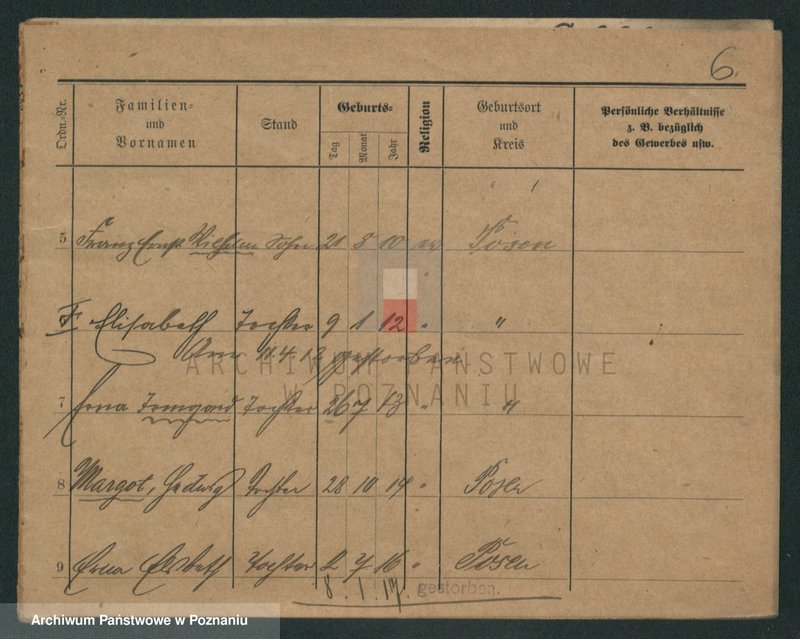 6.
Ordn.-Nr.
Familien= und Vornamen
Stand
Geburts=
Tag
Monat
Jahr
Religion
Geburtsort und Kreis
Persönliche Verhältnisse z. B. bezüglich des Gewerbes usw.
5 Franz Ernst Wilhelm Sohn 20 8 10 ev Posen
Elisabeth Tochter 9 1 12 " "
Am 11.4.12 gestorben
7 Erna Irmgard Tochter 26 7 13 " "
8 Margot, Hedwig Tochter 28 10 14 " Posen
9 Erna Elsbeth Tochter 2 7 16 " Posen
8. 1. 17. gestorben.
ARCHIWUM PAŃSTWOWE
W POZNANIU
Archiwum Państwowe w Poznaniu